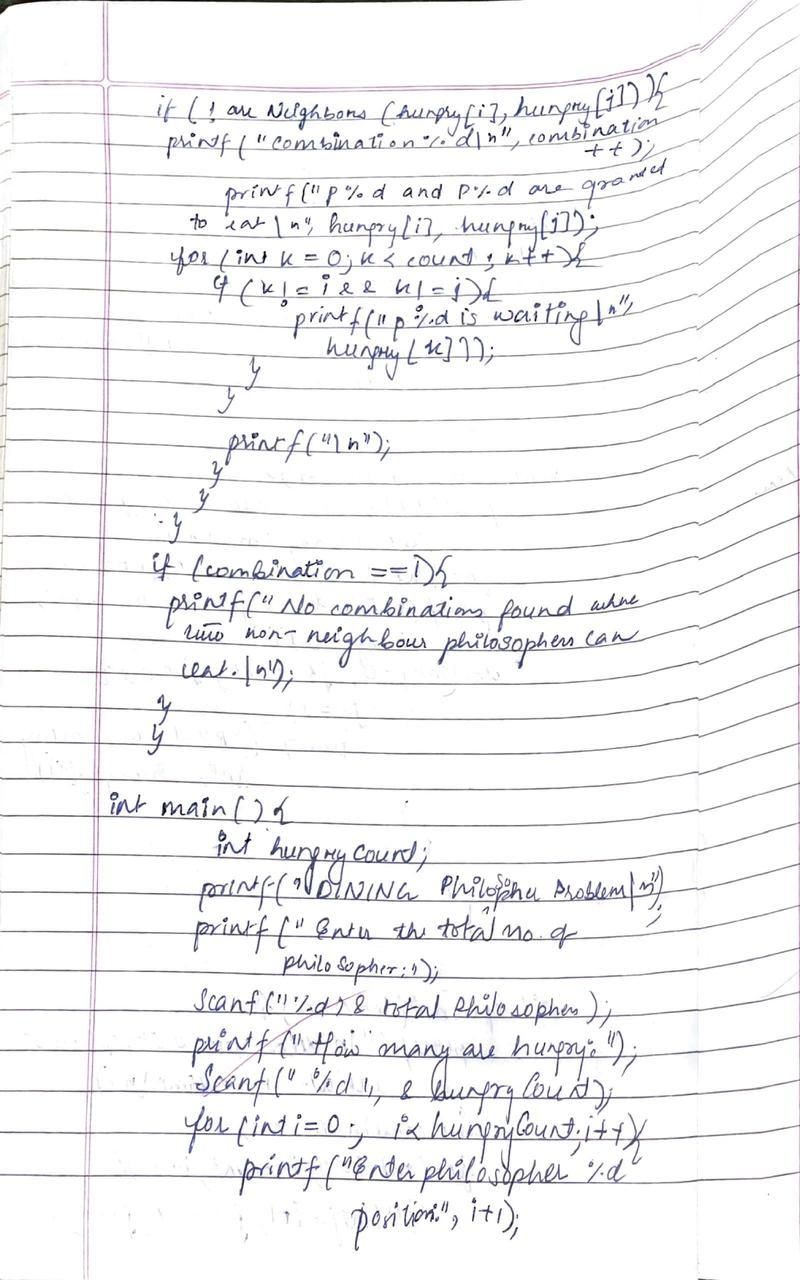 if (! are Neighbons (hungry[i], hungry[j])){
printf ("combination %d\n", combination
++);
printf("P%d and P%d are granted
to eat \n", hungry[i], hungry[j]);
for (int k = 0; k < count; k++){
if (k != i && k != j){
printf("p%d is waiting\n",
hungry[k]));
}
}
printf("\n");
}
}
}
if (combination ==1){
printf("No combinations found where
two non-neighbour philosophers can
eat.\n");
}
}
int main() {
int hungryCount;
printf("DINING Philosopher Problem\n")
;
printf ("Enter the total no. of
philosopher:");
Scanf("%d, & total Philosophers);
printf ("How many are hungry:");
Scanf("%d", & hungryCount);
for (int i=0; i< hungryCount; i++){
printf ("Enter philosopher %d
position:", i+1);